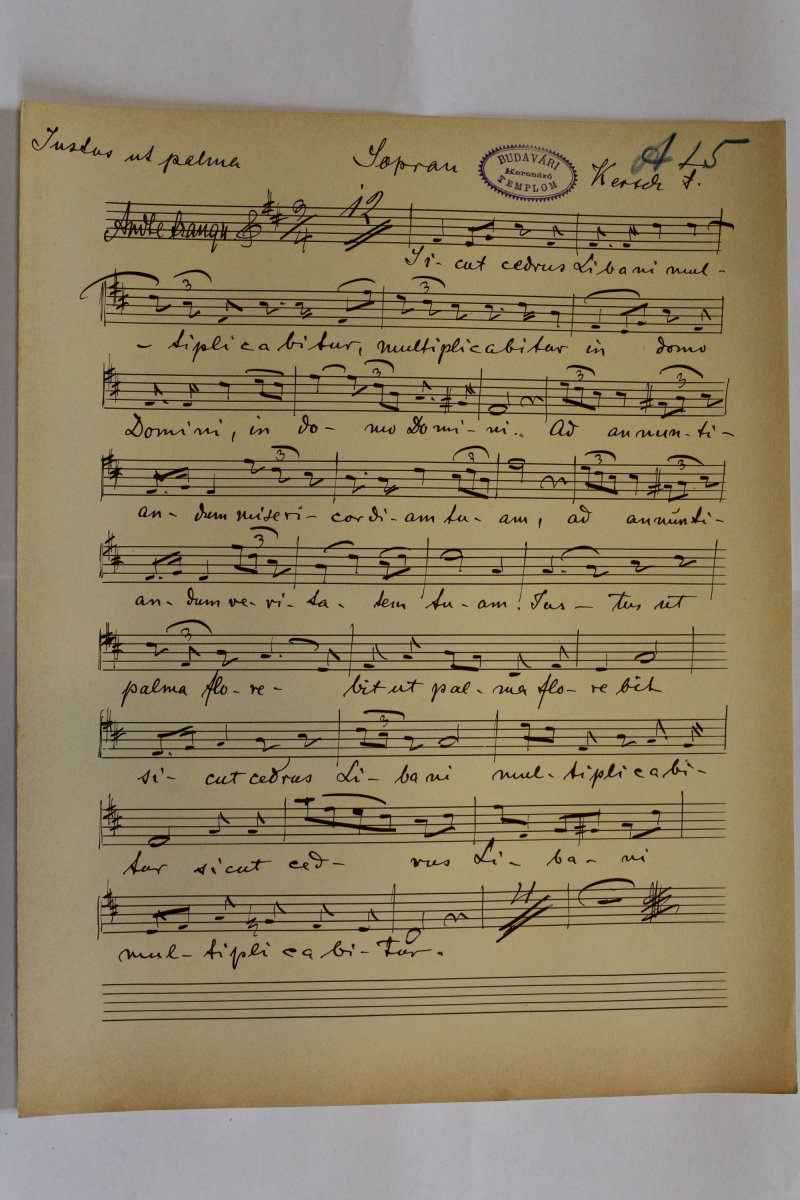 Justus ut palma Sopran BUDAVÁRI Koronázó TEMPLOM Kersch F. A L5
Andte tranqu 3/4 12
Si- cut cedrus Libani mul-
3 3
- tiplicabitur, multiplicabitur in domo
3 3 3
Domini, in do- mo Domi- ni. Ad annun-ti-
3 3 3 3
an- dum miseri- cordi- am tu- am, ad annunti-
3
an- dum ve- ri- ta- tem tu- am. Jus- tus ut
3
palma flo- re- bit ut pal- ma flo- re bit
3
si- cut cedrus Li- bani mul- tiplicabi-
tur sicut ced- rus Li- ba- ni
mul- tiplicabi- tur.